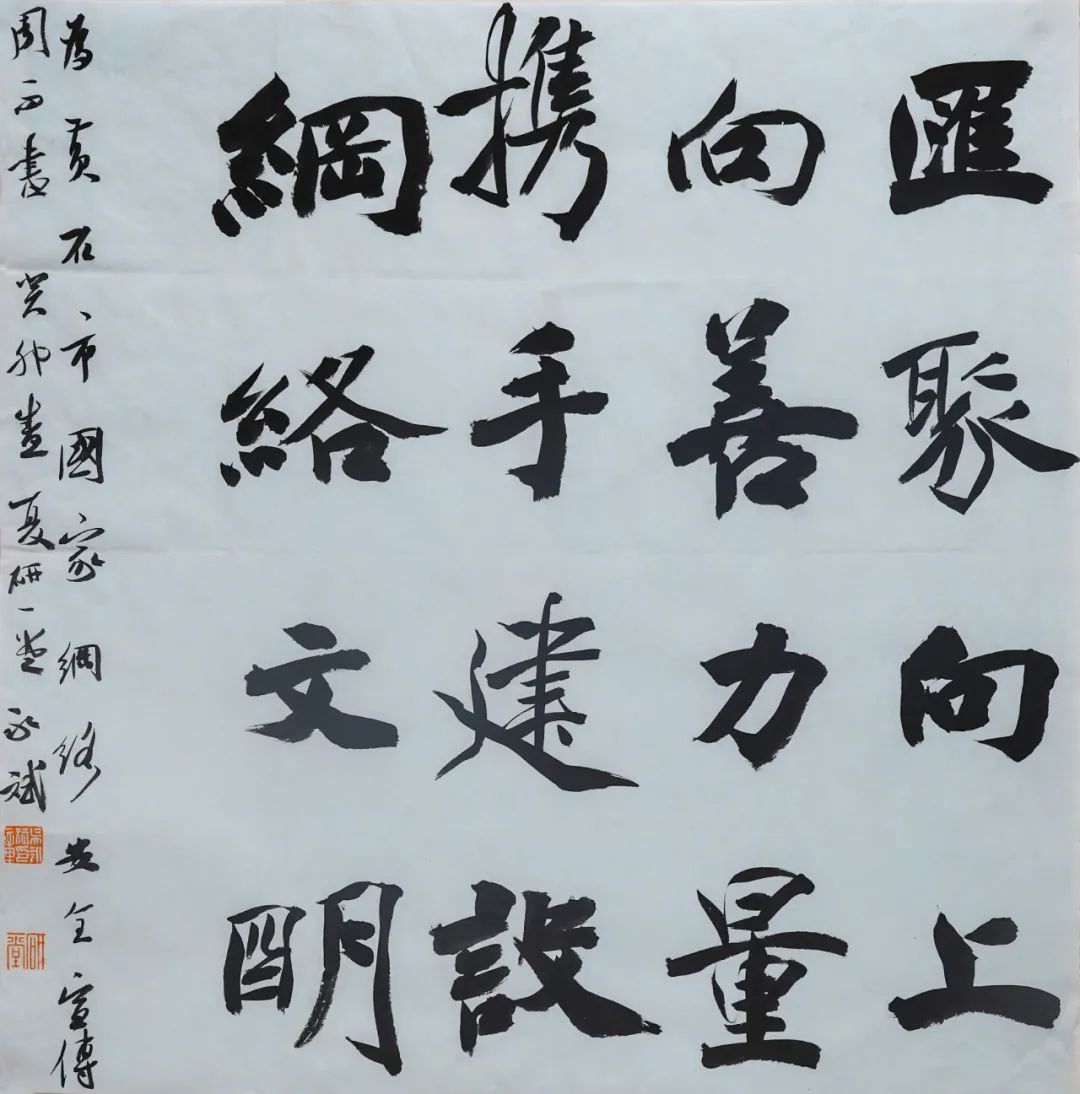 匯聚向上
向善力量
携手建設
網絡文明
為黃石市國家網絡安全宣傳
周而書 癸卯夏研一堂 永斌